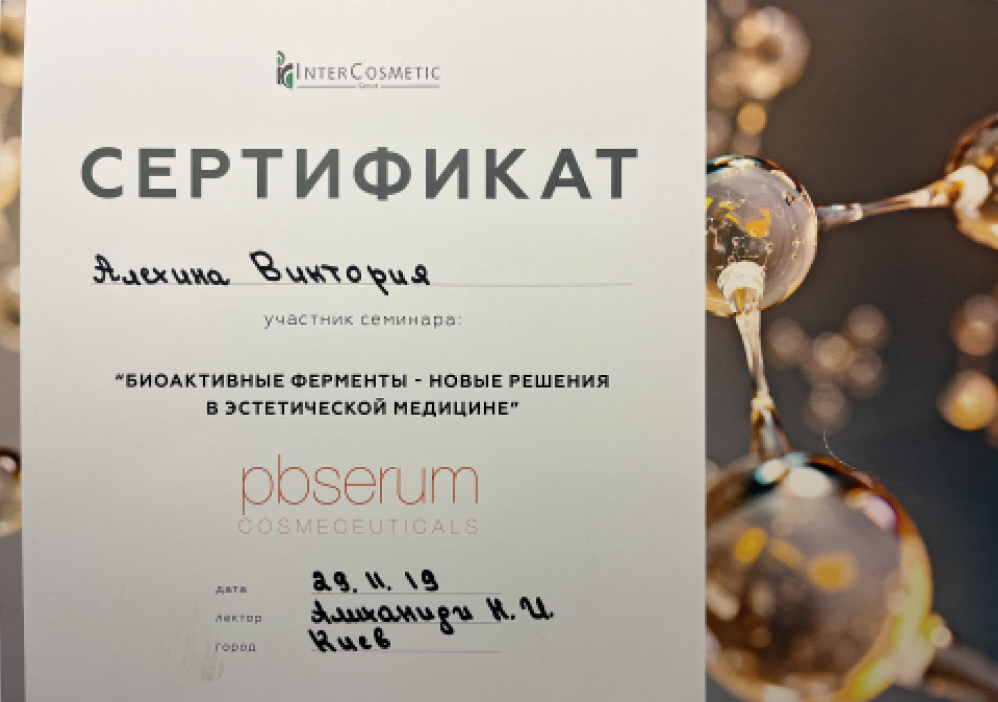 INTERCOSMETIC
Group
СЕРТИФИКАТ
Алехина Виктория
участник семинара:
“БИОАКТИВНЫЕ ФЕРМЕНТЫ - НОВЫЕ РЕШЕНИЯ
В ЭСТЕТИЧЕСКОЙ МЕДИЦИНЕ”
pbserum
COSMECEUTICALS
дата 29.11.19
лектор Алиханиди Н. И.
город Киев